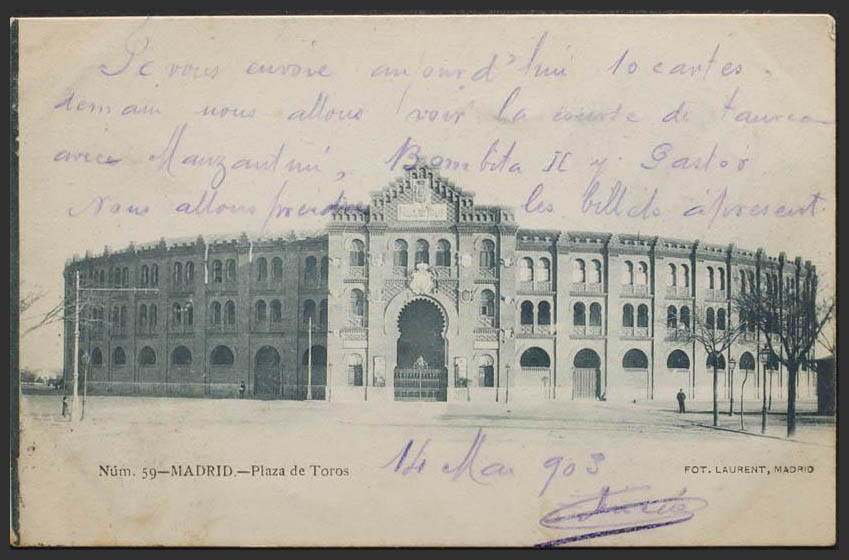 Je vous envoie aujourd'hui 10 cartes.
demain nous allons voir la course de taureau
avec Manzantini, Bombita II y Gastor
Nous allons prendre les billets àpresent.
Núm. 59—MADRID.—Plaza de Toros
14 Mai 903
FOT. LAURENT, MADRID